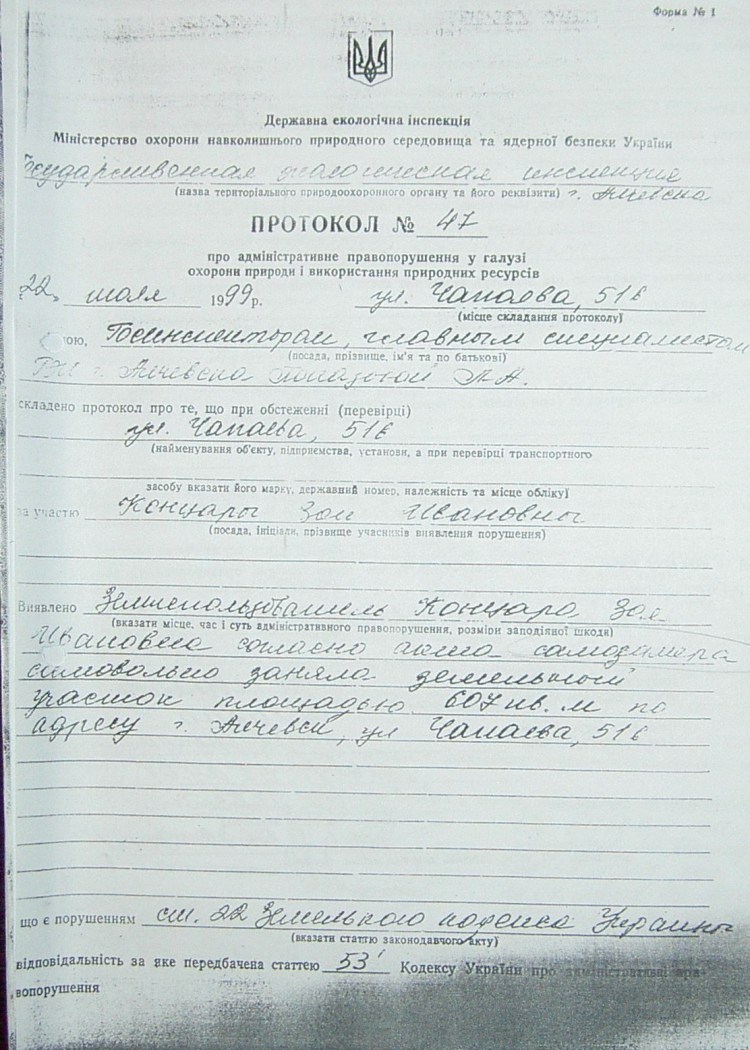 Форма № 1
Державна екологічна інспекція
Міністерство охорони навколишнього природного середовища та ядерної безпеки України
Государственная экологическая инспекция
(назва територіального природоохоронного органу та його реквізити) г. Алчевска
ПРОТОКОЛ № 47
про адміністративне правопорушення у галузі
охорони природи і використання природних ресурсів
22 июля 1999 р. ул. Чапаева, 51б
(місце складання протоколу)
мною, Госинспектором, главным специалистом
(посада, прізвище, ім'я та по батькові)
г. Алчевска Л.А.
складено протокол про те, що при обстеженні (перевірці)
ул. Чапаева, 51б
(найменування об'єкту, підприємства, установи, а при перевірці транспортного
засобу вказати його марку, державний номер, належність та місце обліку)
за участю Концары Зои Ивановны
(посада, ініціали, прізвище учасників виявлення порушення)
Виявлено Землепользователь Концара Зоя
(вказати місце, час і суть адміністративного правопорушення, розміри заподіяної шкоди)
Ивановна согласно акта самозамера
самовольно заняла земельный
участок площадью 607 кв. м по
адресу г. Алчевск, ул Чапаева, 51б
що є порушенням ст. 22 Земельного кодекса Украины
(вказати статтю законодавчого акту)
відповідальність за яке передбачена статтею 53¹ Кодексу України про адміністративні пра-
вопорушення